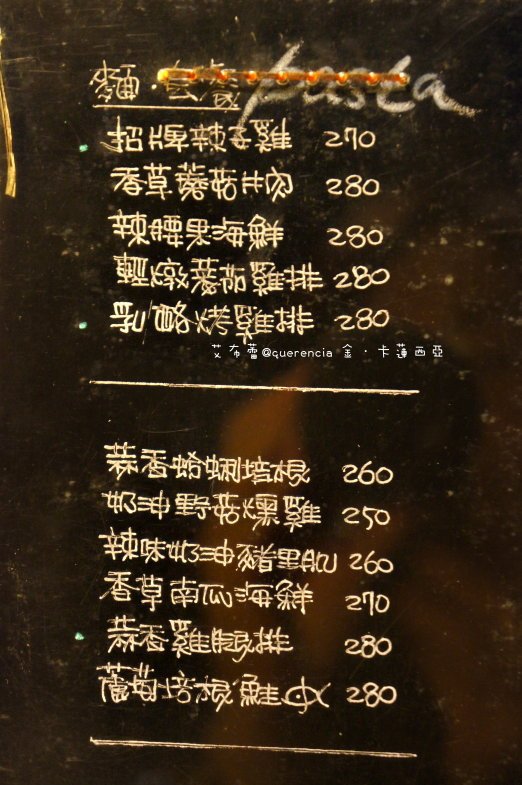 麵·套餐 pasta
招牌辣子雞 270
香草蘑菇片肉 280
辣腰果海鮮 280
輕燉蕃茄雞排 280
乳酪烤雞排 280
艾布蕾@querencia 金·卡蓮西亞
蒜香蛤蜊培根 260
奶油野菇燻雞 250
辣味奶油豬里肌 260
香草南瓜海鮮 270
蒜香雞腿排 280
蘆筍培根鮭魚 280